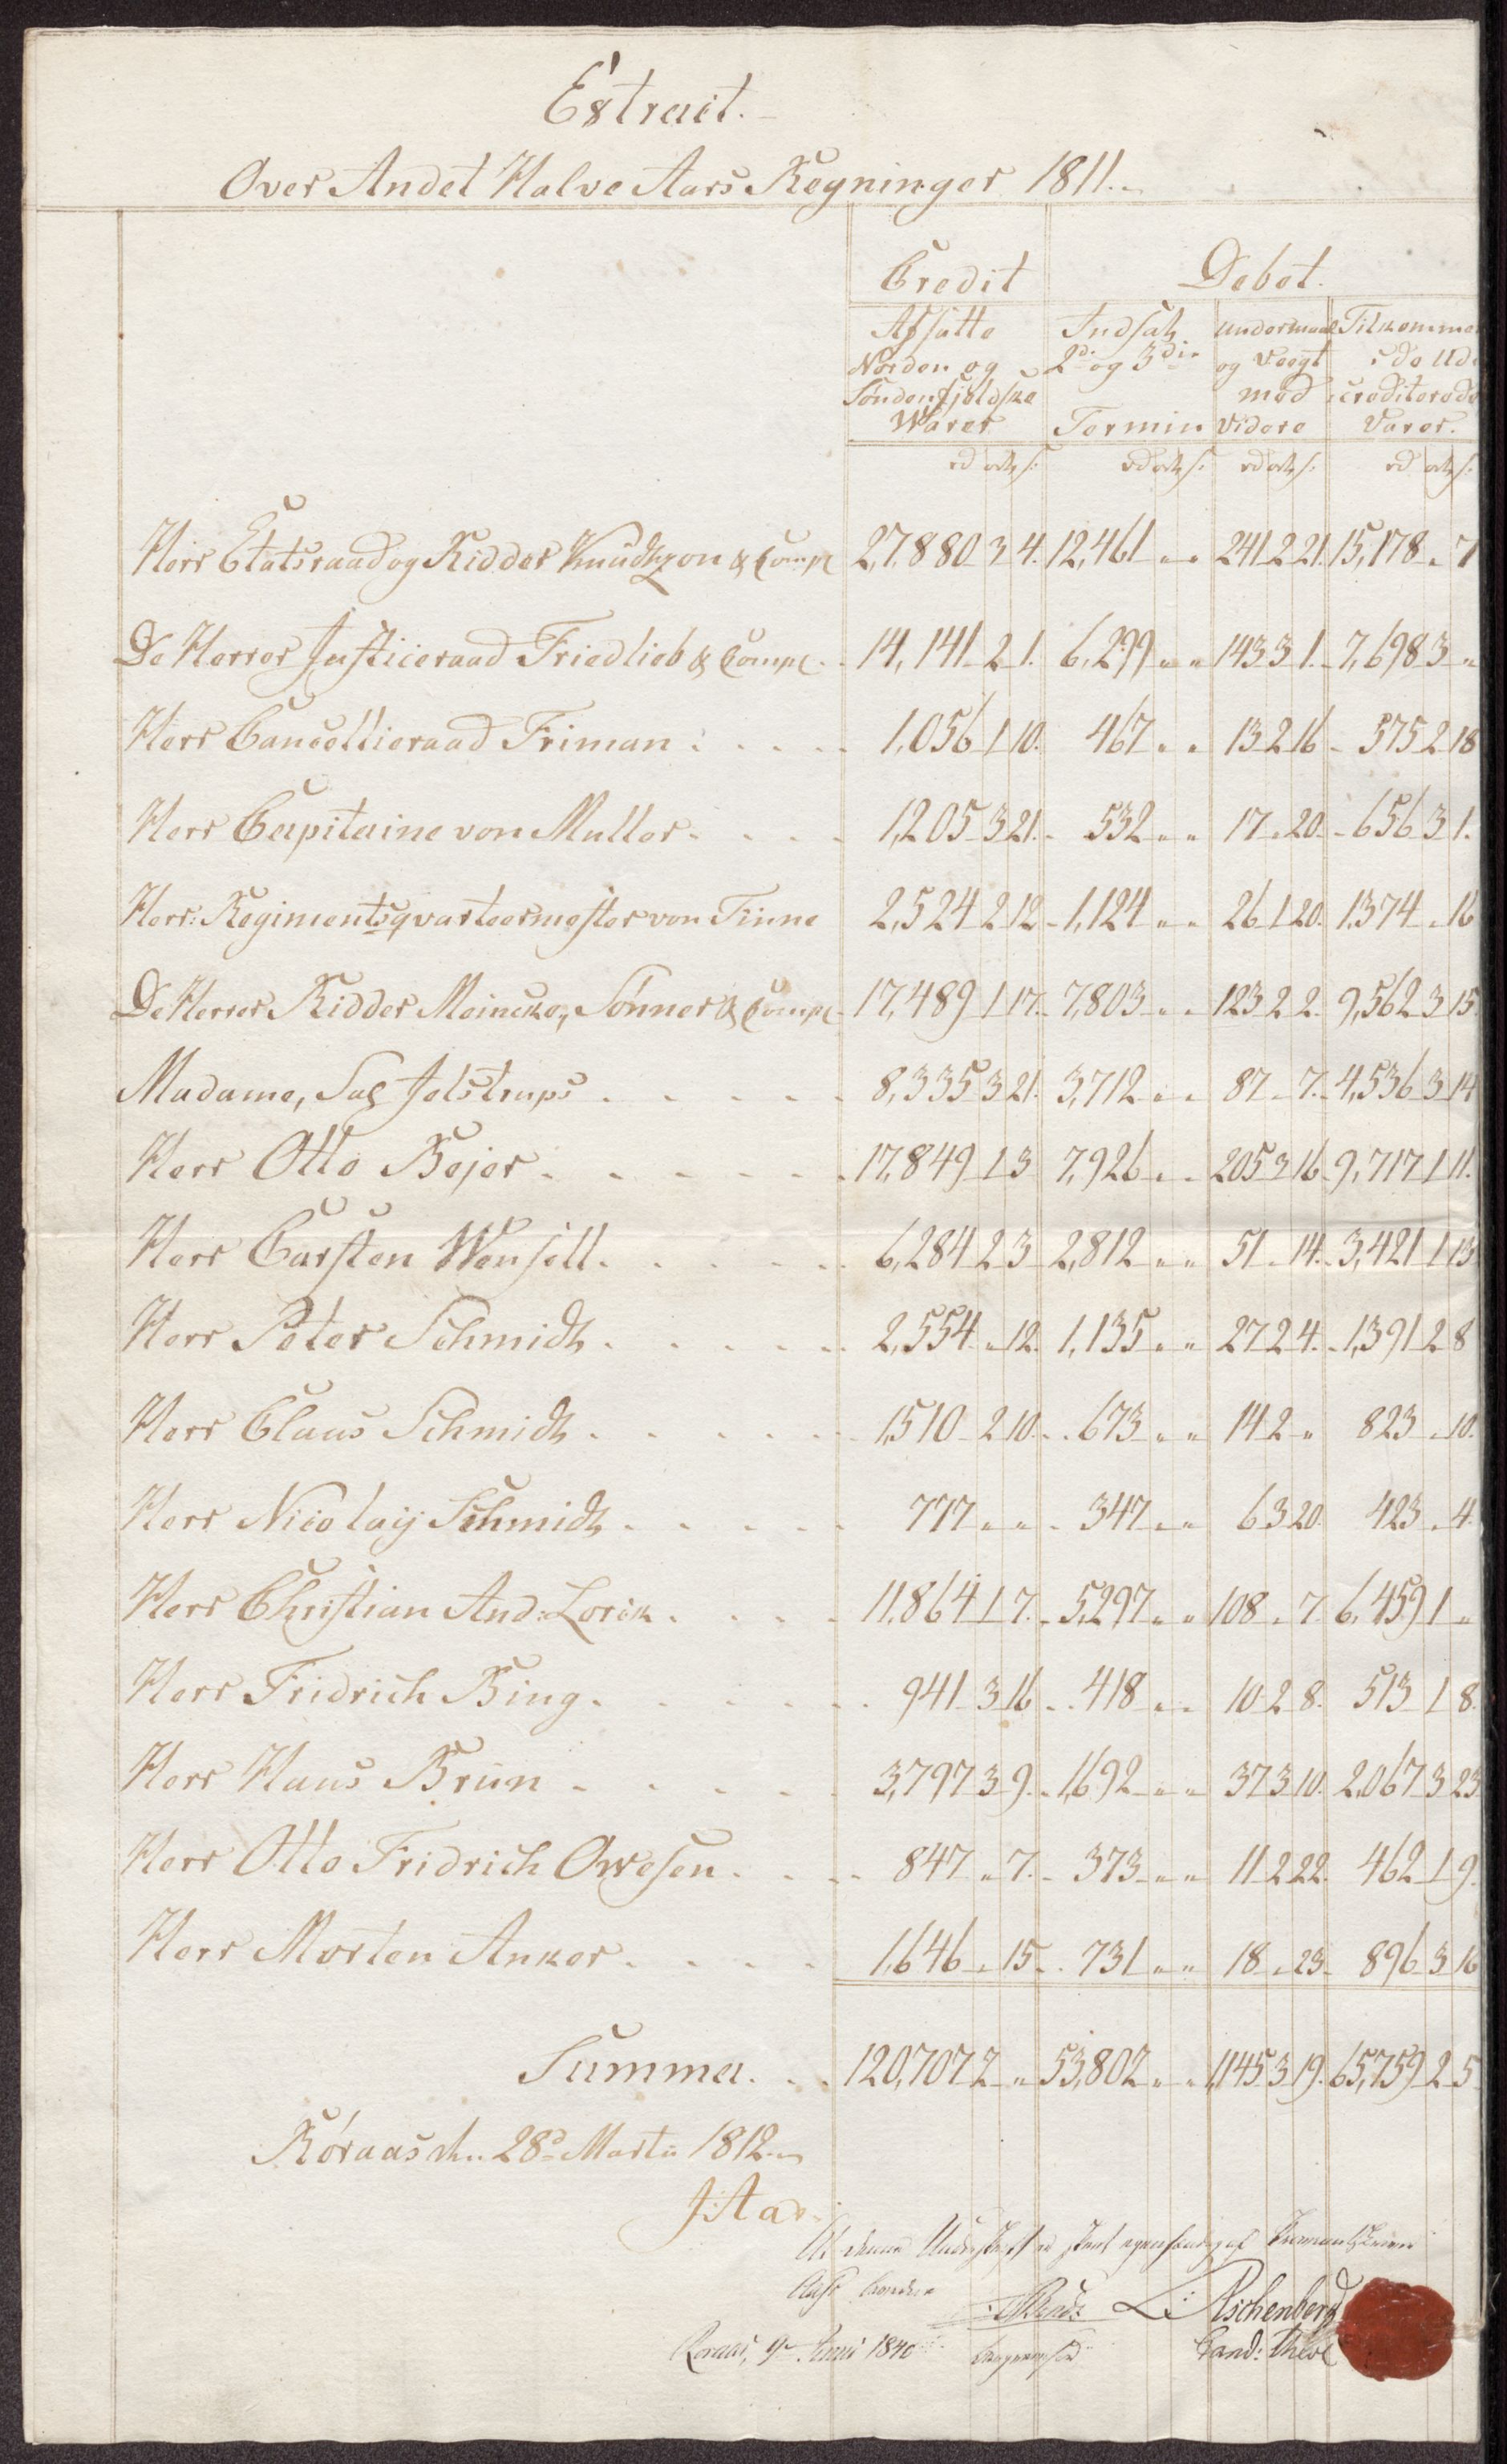 Extrait.
Over Andet Halve Aars Regninger 1811.
Credit Debet.
Afsatte Indsatz Undermaal Tilkomme
Norden og 2di og 3die og Vægt i de Ud
Søndenfjeldske med crediterede
Warer Termin Videre Varer.
rd ort s: rd ort s: rd ort s: rd ort s:
Herr Etatsraad og Ridder Knudtzon & Comp 27,880 3 4. 12,461 " " 241 2 21. 15,178 " 7
De Herrer Justiceraad Friedlieb & Comp. 14,141 2 1. 6,299 " " 143 3 1. 7,698 3 "
Herr Cancellieraad Friman 1,056 1 10. 467 " " 13 2 16 575 2 18
Herr Capitaine von Muller 1,205 3 21. 532 " " 17 " 20. 656 3 1.
Herr: Regimentsqvarteermester von Tinne 2,524 2 12 1,124 " " 26 1 20. 1,374 " 16
De Herrer Ridder Meincke, Sønner & Comp 17,489 1 17. 7,803 " " 123 2 2. 9,562 3 15
Madame, Sal Jelstrups 8,335 3 21. 3,712 " " 87 " 7. 4,536 3 14
Herr Otto Bejer 17,849 1 3 7,926 " " 205 3 16 9,717 1 11.
Herr Carsten Wensell 6,284 2 3 2,812 " " 51 " 14. 3,421 1 13
Herr Peter Schmidt 2,554 " 12. 1,135 " " 27 2 4. 1,391 2 8
Herr Claus Schmidt 1,510 2 10. 673 " " 14 2 " 823 " 10.
Herr Nicolaij Schmidt 777 " " 347 " " 6 3 20. 423 " 4.
Herr Christian And: Lorck 11,864 1 7. 5,297 " " 108 " 7. 6,459 1 "
Herr Fridrich Bing 941 3 16 418 " " 10 2 8. 513 1 8.
Herr Hans Brun 3,797 3 9. 1,692 " " 37 3 10. 2,067 3 23
Herr Otto Fridrich Owesen 847 " 7. 373 " " 11 2 22. 462 1 9.
Herr Morten Anker 1,646 " 15 731 " " 18 " 23 896 3 16
Summa 120,707 2 " 53,802 " " 1,145 3 19. 65,759 2 5
Røraas d. 28d Martii 1812
At denne egenhændig af
L: Aschenberg
Roraas, 9 Juni 1840 Cand: theol